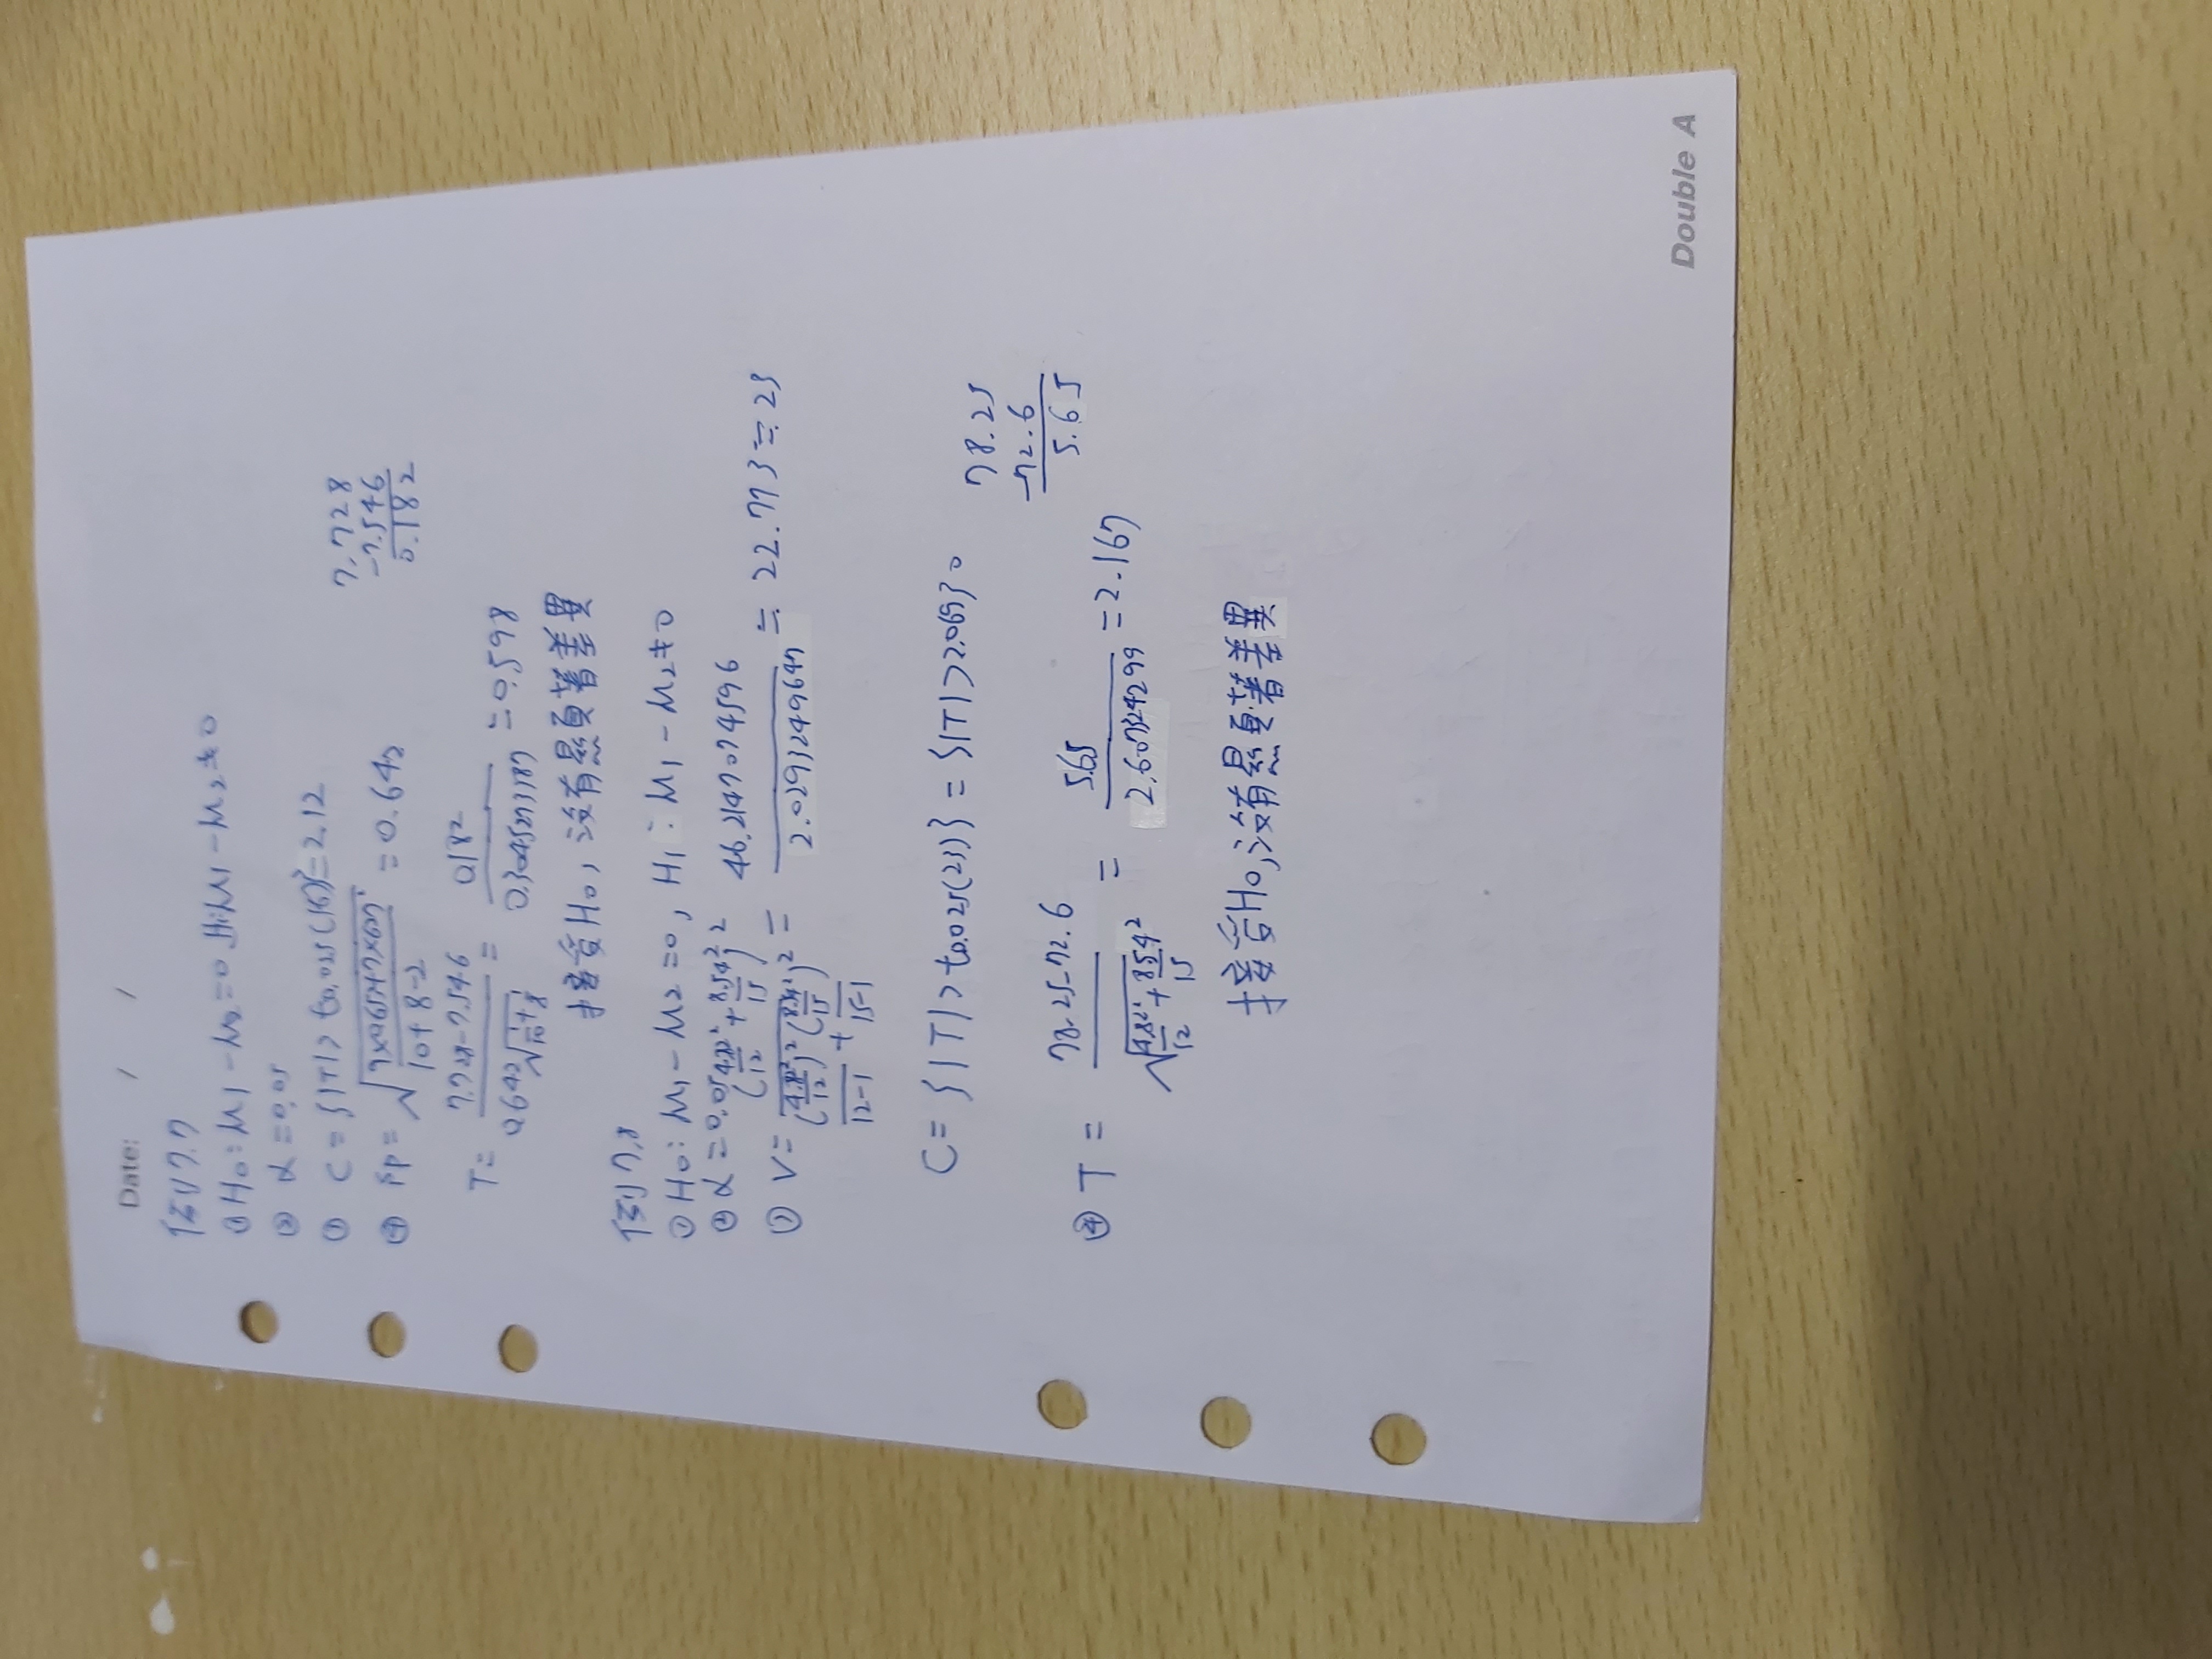 Date: / /
例7.7
① H0：μ1－μ2=0 H1：μ1－μ2≠0
② α=0.05
③ C={|T|> t0.025(16)}=2.12
7.728
-7.546
0.182
④ Sp=√((9×0.65²+7×0.627²)/(10+8-2)) =0.642
T= (7.728-7.546)/(0.642√(1/10+1/8)) = 0.182/0.3045273187 =0.598
接受H0, 沒有顯著差異
例7.8
① H0：μ1－μ2=0, H1：μ1－μ2≠0
② α=0.05
③ V= (4.82²/12+8.54²/15)²/((4.82²/12)²/(12-1)+(8.54²/15)²/(15-1)) = 46.2147074596/2.0293249647 ≒ 22.773≒23
C= {|T|> t0.025(23)} = {|T|>2.069}。
78.25
-72.6
5.65
④ T = (78.25-72.6)/√(4.82²/12+8.54²/15) = 5.65/2.607324299 =2.167
接受H0, 沒有顯著差異
Double A